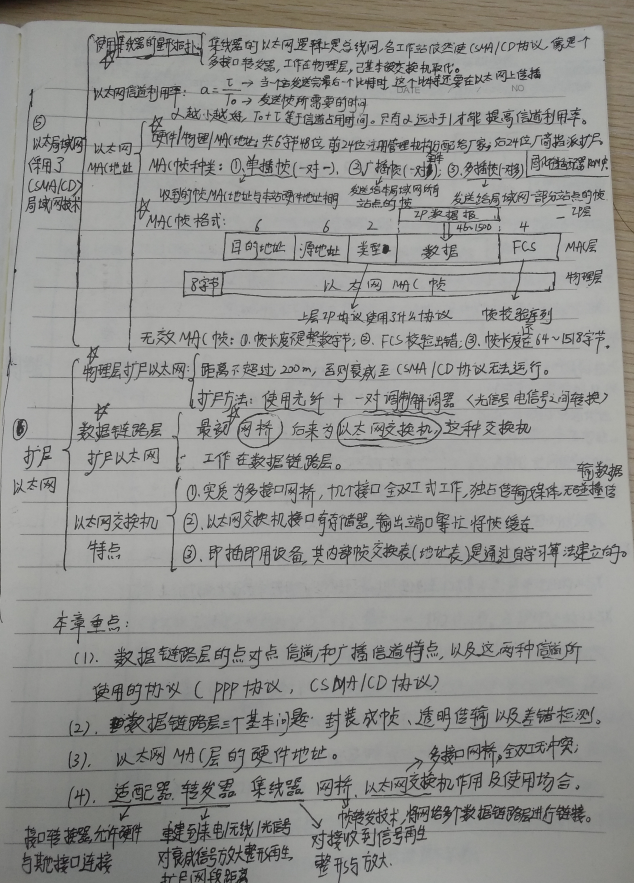 使用集线器的星形拓扑
集线器的以太网逻辑上是总线网,各工作站依然使CSMA/CD协议,像是个
多接口转发器,工作在物理层,已基本被交换机取代。
以太网信道利用率: a = τ/T₀ → 当一个站发送完最后一个比特时,这个比特还要在以太网上传播
→ 发送帧所需要的时间
DATE NO
a越小越好, T₀+τ等于信道占用时间。只有a远小于1才能提高信道利用率。
⑤
以太局域网
使用了
CSMA/CD
局域网技术
以太网
MAC地址
硬件/物理/MAC地址:共6字节48位,前24位注册管理机构分配给厂家,后24位厂商指派扩展。
MAC帧种类:①,单播帧(一对一),②广播帧(一对全体)③,多播帧(一对多)
收到的帧MAC地址与本站硬件地址相同
发送给本局域网所有
站点的帧
发送给局域网一部分站点的帧
MAC帧格式:
IP数据报 IP层
6 6 2 46~1500 4
目的地址 源地址 类型 数据 FCS MAC层
8字节 以太网MAC帧 物理层
上层IP协议使用了什么协议 帧校验序列
无效MAC帧:①,帧长度不是整数字节;②,FCS校验出错;③,帧长度不在64~1518字节。
⑥
扩展
以太网
物理层扩展以太网:
距离不超过200m,否则衰减至CSMA/CD协议无法运行。
扩展方法:使用光纤+一对调制解调器(光信号电信号之间转换)
数据链路层
扩展以太网
最初 网桥 后来为 以太网交换机 这种交换机
工作在数据链路层。
以太网交换机
特点
①,实质为多接口网桥,十几个接口全双工式工作,独占传输媒体,无碰撞传
输数据
②,以太网交换机接口有存储器,输出端口繁忙将帧缓存
③,即插即用设备,其内部帧交换表(地址表)是通过自学习算法建立的。
本章重点:
(1). 数据链路层的点对点信道和广播信道特点,以及这两种信道所
使用的协议(PPP协议, CSMA/CD协议)
(2). 数据链路层三个基本问题:封装成帧、透明传输以及差错检测。
(3). 以太网MAC层的硬件地址。
→多接口网桥,全双工无冲突;
(4). 适配器、转发器、集线器、网桥、以太网交换机作用及使用场合。
帧转发技术,将网络多个数据链路层进行链接。
接口转换器,允许硬件
与其他接口连接
重建到来电/无线/光信号
对衰减信号放大整形再生
扩展网段距离
对接收到信号再生
整形与放大.